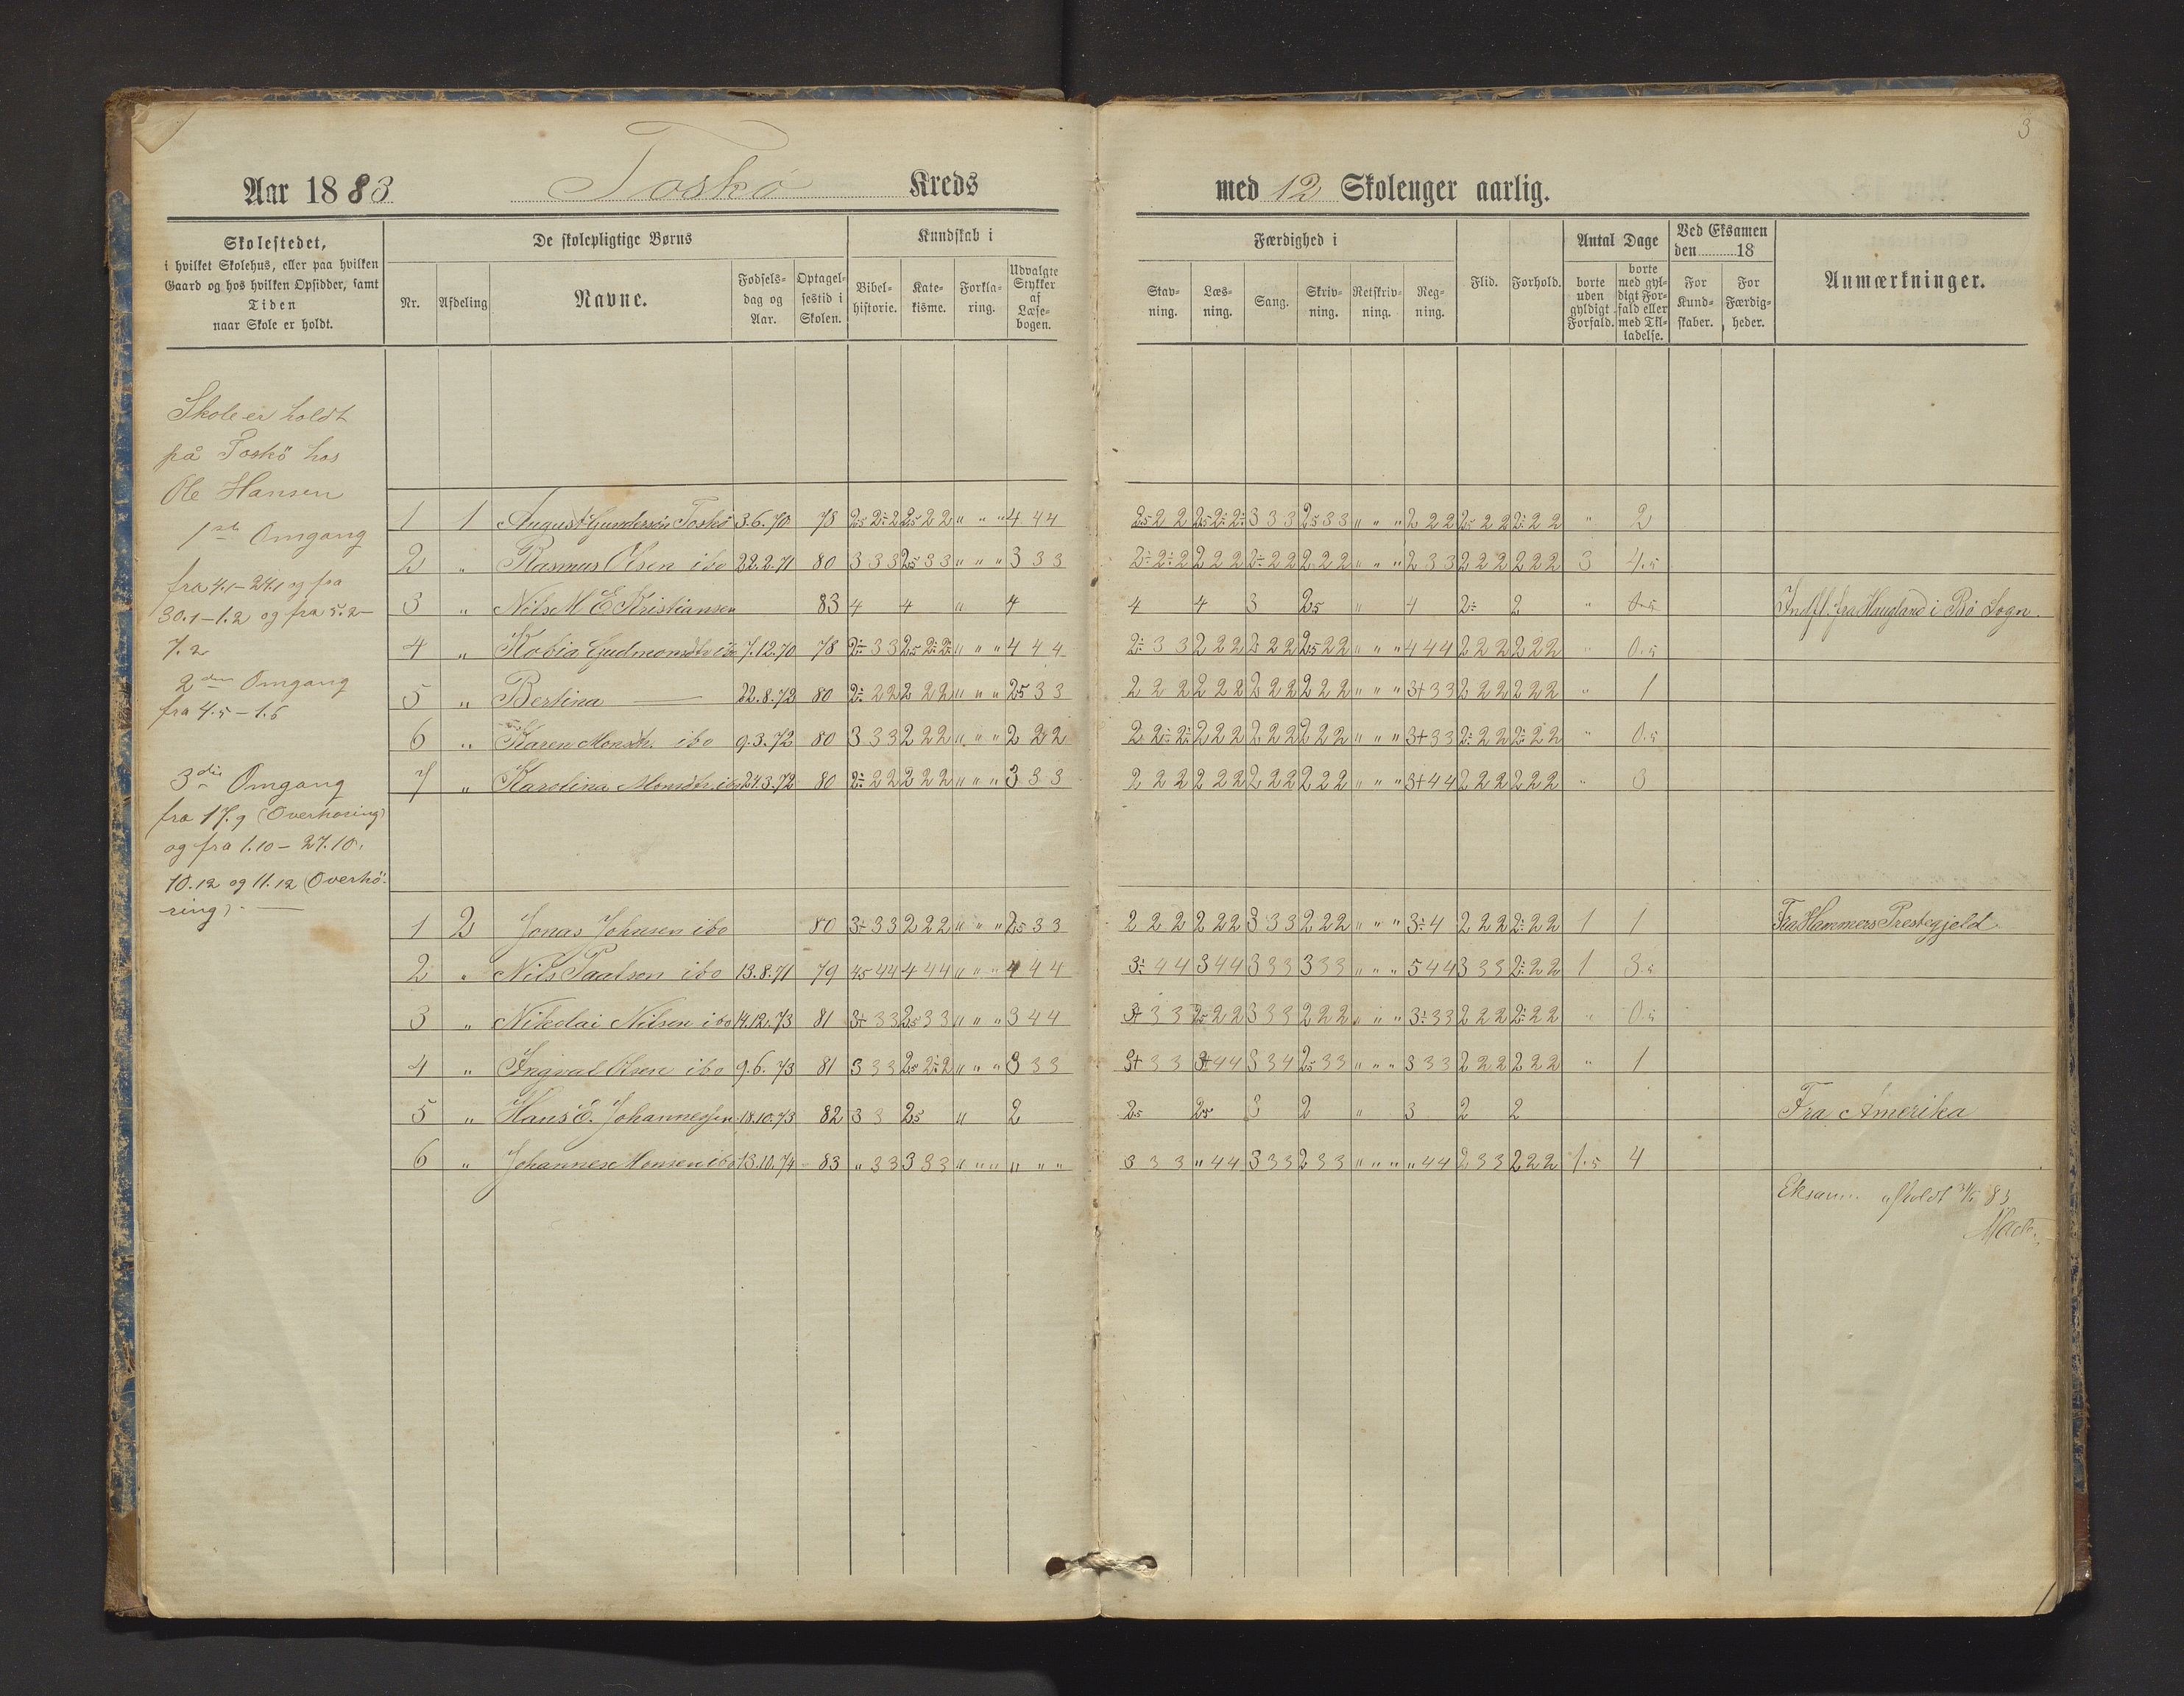 3
Aar 1883 Toskö Kreds med 12 Skolenger aarlig.
Skolestedet,
i hvilket Skolehus, eller paa hvilken
Gaard og hos hvilken Opsidder, samt
Tiden
naar Skole er holdt.
De skolepligtige Børns
Nr. Afdeling Navne. Fødsels-dag og Aar. Optagel-sestid i Skolen.
Kundskab i
Bibel-historie. Kate-kisme. Forkla-ring. Udvalgte Stykker af Læse-bogen.
Færdighed i
Stav-ning. Læs-ning. Sang. Skriv-ning. Retskriv-ning. Reg-ning.
Flid. Forhold.
Antal Dage
borte uden gyldigt Forfald. borte med gyl-digt For-fald eller med Til-ladelse.
Ved Eksamen
den 18
For Kund-skaber. For Færdig-heder.
Anmærkninger.
Skole er holdt
på Toskö hos
Ole Hansen
1ste Omgang
fra 4.1–24.1 og fra
30.1–1.2 og fra 5.2–
7.2
2den Omgang
fra 4.5–1.6
3die Omgang
fra 17.9 (Overhöring)
og fra 1.10–27.10,
10.12 og 11.12 (Overhö-
ring).
1 1 August Gundersön Toskö 3.6.70 78 25 2÷ 2 25 2 2 " " " 4 4 4 25 2 2 25 2÷ 2÷ 3 3 3 25 3 3 " " " 2 2 2 25 2 2 2÷ 2 2 " 2
2 " Rasmus Olsen ibo 22.2.71 80 3 3 3 25 3 3 " " " 3 3 3 2÷ 2÷ 2 2 2 2 2÷ 2 2 2 2 2 " " " 2 3 3 2 2 2 2 2 2 3 4.5
3 " Nils M E Kristiansen 83 4 4 " 4 4 4 3 25 " 4 2÷ 2 " 0.5 Indfl. fra Haugland i Bö Sogn.
4 " 7.12.70 78 2÷ 3 3 25 2÷ 2÷ " " " 4 4 4 2÷ 3 3 2 2 2 2 2 2 25 2 2 " " " 4 4 4 2 2 2 2 2 2 " 0.5
5 " Bertina — 22.8.72 80 2÷ 2 2 2 2 2 " " " 25 3 3 2 2 2 2 2 2 2 2 2 2 2 2 " " " 3+ 3 3 2 2 2 2 2 2 " 1
6 " Karen Monsdtr. ibo 9.3.72 80 3 3 3 2 2 2 " " " 2 2 2 2 2÷ 2÷ 2 2 2 2 2 2 2 2 2 " " " 3+ 3 3 2÷ 2 2 2÷ 2 2 " 0.5
7 " Karolina Monsdtr. ibo 24.3.72 80 2÷ 2 2 2 2 2 " " " 3 3 3 2 2 2 2 2 2 2 2 2 2 2 2 " " " 3+ 4 4 2 2 2 2 2 2 " 3
1 2 Jonas Johnsen ibo 80 3÷ 3 3 2 2 2 " " " 25 3 3 2 2 2 2 2 2 3 3 3 2 2 2 " " " 3÷ 4 2 2 2 2÷ 2 2 1 1 Fra Hammers Prestegjeld.
2 " Nils Paulsen ibo 13.8.71 79 45 4 4 4 4 4 " " " 4 4 4 3÷ 4 4 3 4 4 3 3 3 3 3 3 " " " 5 4 4 3 3 3 2÷ 2 2 1 3.5
3 " Nikolai Nilsen ibo 14.12.73 81 3+ 3 3 25 3 3 " " " 3 4 4 3+ 3 3 25 2 2 3 3 3 2 2 2 " " " 3÷ 3 3 2 2 2 2÷ 2 2 " 0.5
4 " Ingval Olsen ibo 9.6.73 81 3 3 3 25 2÷ 2 " " " 3 3 3 3+ 3 3 3+ 4 4 3 3 4 25 3 3 " " " 3 3 3 2 2 2 2 2 2 " 1
5 " Hans E. Johannessen 18.10.73 82 3 3 25 " 2 25 25 3 2 " 3 2 2 Fra Amerika
6 " Johannes Monsen ibo 13.10.74 83 " 3 3 3 3 3 " " " " " " 3 3 3 " 4 4 3 3 3 2 3 3 " " " " 4 4 2 3 3 2 2 2 1.5 4
afholdt 83